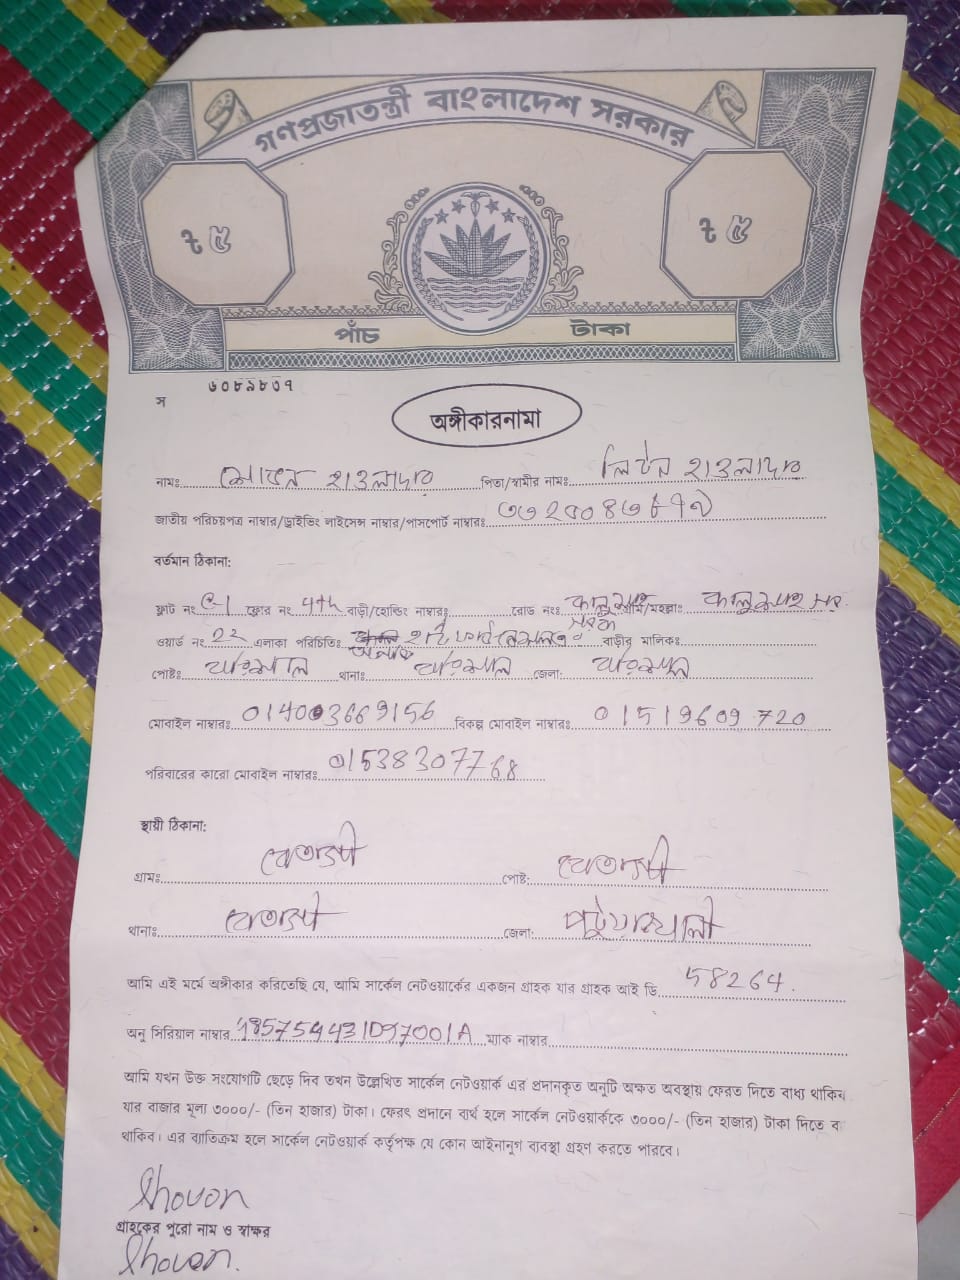 গণপ্রজাতন্ত্রী বাংলাদেশ সরকার
৳ ৫ ৳ ৫
পাঁচ টাকা
স ৬০৮৯৮৩৭
অঙ্গীকারনামা
নামঃ শোভন হাওলাদার পিতা/স্বামীর নামঃ লিটন হাওলাদার
জাতীয় পরিচয়পত্র নাম্বার/ড্রাইভিং লাইসেন্স নাম্বার/পাসপোর্ট নাম্বারঃ
বর্তমান ঠিকানা:
ফ্লাট নং C-1 ফ্লোর নং 4th বাড়ী/হোল্ডিং নাম্বারঃ রোড নংঃ গ্রাম/মহল্লাঃ
ওয়ার্ড নং 22 এলাকা পরিচিতিঃ বাড়ীর মালিকঃ
পোষ্টঃ বরিশাল থানাঃ বরিশাল জেলা: বরিশাল
মোবাইল নাম্বারঃ বিকল্প মোবাইল নাম্বারঃ 01519609720
পরিবারের কারো মোবাইল নাম্বারঃ 01538307768
স্থায়ী ঠিকানা:
গ্রামঃ বেতাগী পোষ্ট: বেতাগী
থানাঃ বেতাগী জেলা: পটুয়াখালী
আমি এই মর্মে অঙ্গীকার করিতেছি যে, আমি সার্কেল নেটওয়ার্কের একজন গ্রাহক যার গ্রাহক আই ডি 58264.
অনু সিরিয়াল নাম্বার 485754431D97001A ম্যাক নাম্বার
আমি যখন উক্ত সংযোগটি ছেড়ে দিব তখন উল্লেখিত সার্কেল নেটওয়ার্ক এর প্রদানকৃত অনুটি অক্ষত অবস্থায় ফেরত দিতে বাধ্য থাকিব
যার বাজার মূল্য ৩০০০/- (তিন হাজার) টাকা। ফেরৎ প্রদানে ব্যর্থ হলে সার্কেল নেটওয়ার্ককে ৩০০০/- (তিন হাজার) টাকা দিতে ব
থাকিব। এর ব্যতিক্রম হলে সার্কেল নেটওয়ার্ক কর্তৃপক্ষ যে কোন আইনানুগ ব্যবস্থা গ্রহণ করতে পারবে।
Shovon
গ্রাহকের পুরো নাম ও স্বাক্ষর
Shovon.